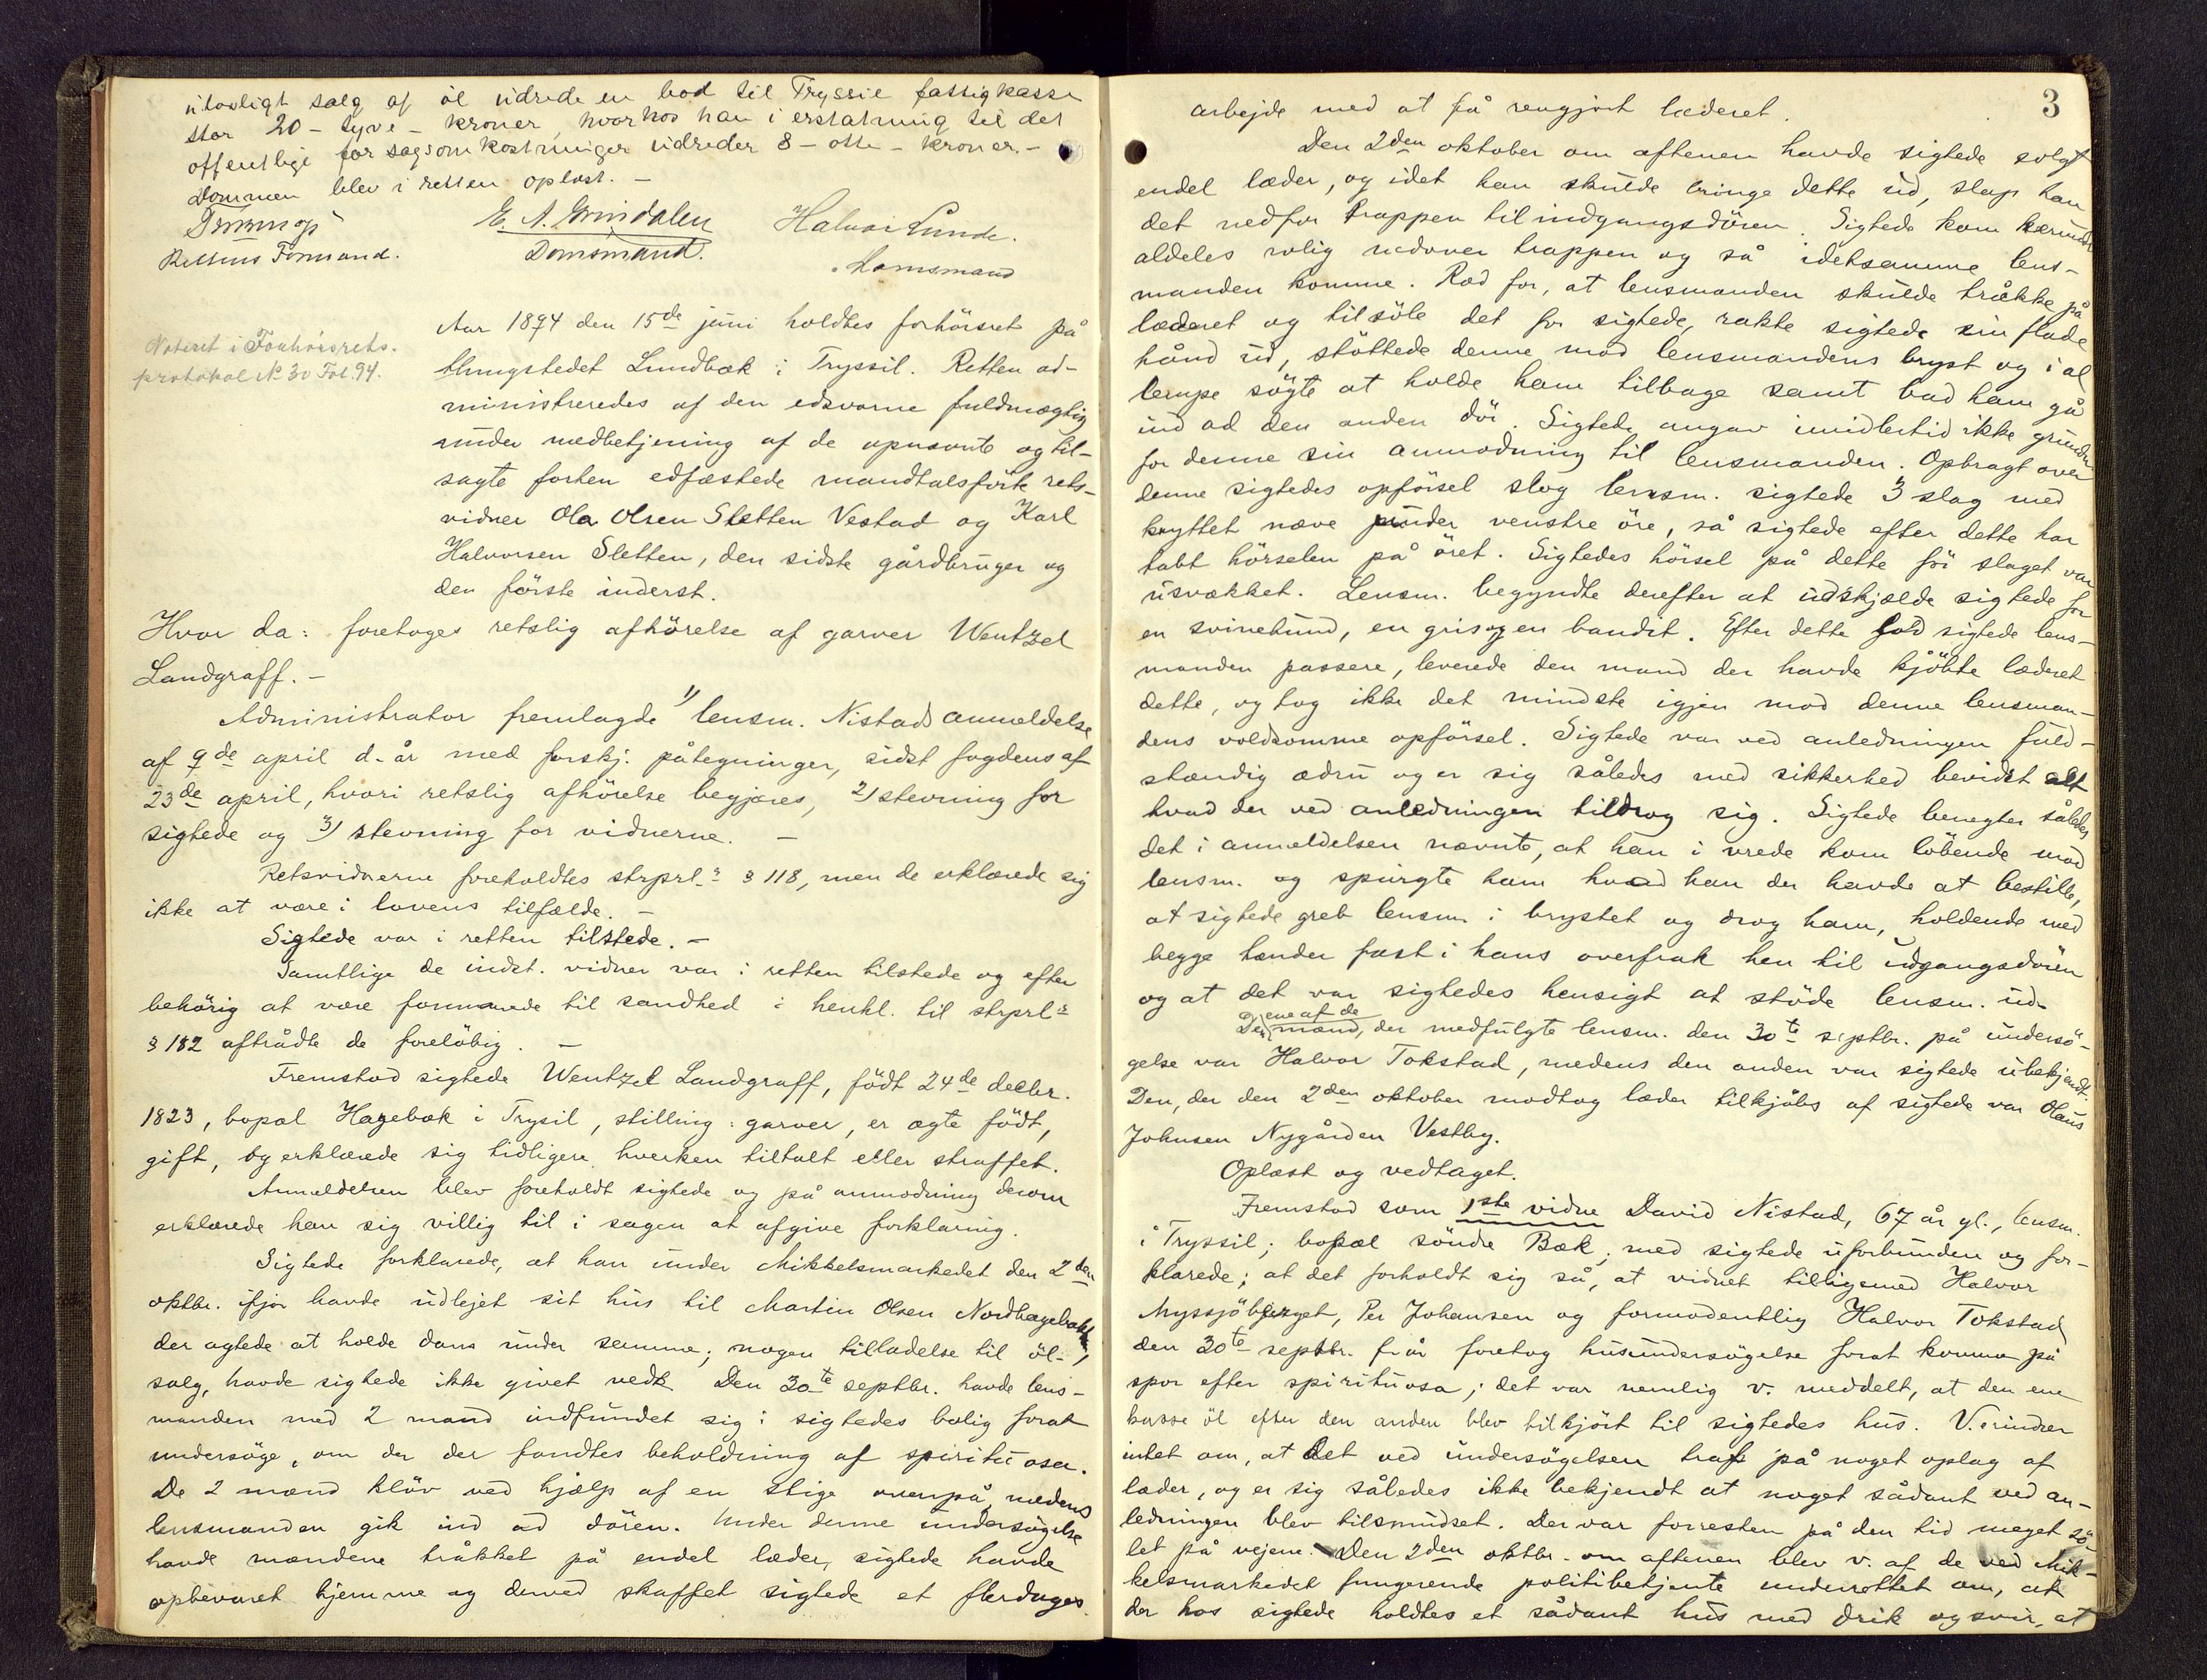 ulovligt salg af öl udrede en bod til Tryssil fattigkasse
stor 20 – tyve – kroner, hvorhos han i erstatning til det
offentlige for sagsomkostninger udreder 8 – otte – kroner. –
Dommen blev i retten oplæst. –
E. A. Grindalen Halvor Lunde.
Rettens Formand. Domsmand. Domsmand
Aar 1894 den 15de juni holdtes forhörsret på
Noteret i Forhörsrets-
protokol No 30 Fol. 94.
thingstedet Lundbæk i Tryssil. Retten ad-
ministreredes af den edsvorne fuldmægtig
under medbetjening af de opnævnte og til-
sagte forhen edfæstede mandtalsförte rets-
vidner Ola Olsen Sletten Vestad og Karl
Halvorsen Sletten, den sidste gårdbruger og
den förste inderst.
Hvor da: foretoges retslig afhörelse af garver Wentzel
Landgraff. –
Administrator fremlagde 1) lensm. Nistads anmeldelse
af 9de april d. år med forskj. påtegninger, sidst fogdens af
23de april, hvori retslig afhörelse begjæres, 2) stevning for
sigtede og 3) stevning for vidnerne. –
Retsvidnerne foreholdtes strprl.s § 118, men de erklærede sig
ikke at være i lovens tilfælde. –
Sigtede var i retten tilstede. –
Samtlige de indst. vidner var i retten tilstede og efter
behörig at være formanede til sandhed i henhl. til strprls
§ 182 aftrådte de forelöbig. –
Fremstod sigtede Wentzel Landgraff, födt 24de decbr.
1823, bopæl Hagebæk i Trysil, stilling: garver, er ægte födt,
gift, og erklærede sig tidligere hverken tiltalt eller straffet.
Anmeldelsen blev foreholdt sigtede og på anmodning derom
erklærede han sig villig til i sagen at afgive forklaring.
Sigtede forklarede, at han under Mikkelsmarkedet den 2den
oktbr. ifjor havde udlejet sit hus til Martin Olsen Nordhagebakk,
der agtede at holde dans under samme; nogen tilladelse til öl-
salg, havde sigtede ikke givet vedk. Den 30te septbr. havde lens-
manden med 2 mand indfundet sig i sigtedes bolig forat
undersöge, om der der fandtes beholdning af spirituosa.
De 2 mænd klöv ved hjælp af en stige ovenpå, medens
lensmanden gik ind ad dören. Under denne undersögelse
havde mændene tråkket på endel læder, sigtede havde
opbevaret hjemme og derved skaffet sigtede et flerdages
3
arbejde med at få rengjort læderet.
Den 2den oktober om aftenen havde sigtede solgt
endel læder, og idet han skulde bringe dette ud, slap han
det nedfor trappen til indgangsdören. Sigtede kom
aldeles rolig nedover trappen og så idetsamme lens-
manden komme. Ræd for, at lensmanden skulde tråkke på
læderet og tilsöle det for sigtede, rakte sigtede sin flade
hånd ud, stöttede denne mod lensmandens bryst og i al
lempe sögte at holde ham tilbage samt bad ham gå
ind ad den anden dör. Sigtede angav imidlertid ikke grunden
for denne sin anmodning til lensmanden. Opbragt over
denne sigtedes opförsel slog lensm. sigtede 3 slag med
knyttet næve under venstre öre, så sigtede efter dette har
tabt hörselen på öret. Sigtedes hörsel på dette för slaget var
usvækket. Lensm. begyndte derefter at udskjælde sigtede for
en svinehund, en gris og en bandit. Efter dette lod sigtede lens-
manden passere, leverede den mand der havde kjöbte læderet
dette, og tog ikke det mindste igjen mod denne lensman-
dens voldsomme opförsel. Sigtede var ved anledningen fuld-
stændig ædru og er sig således med sikkerhed bevidst alt
hvad der ved anledningen tildrog sig. Sigtede benegter således
det i anmeldelsen nævnte, at han i vrede kom löbende mod
lensm. og spurgte ham hvad han der havde at bestille,
at sigtede greb lensm. i brystet og drog ham, holdende med
begge hænder fast i hans overfrak hen til udgangsdören
og at det var sigtedes hensigt at stöde lensm. ud.
Den ene af de mænd, der medfulgte lensm. den 30te septbr. på undersö-
gelse var Halvor Tokstad, medens den anden var sigtede ubekjendt.
Den, der den 2den oktober modtog læder tilkjöbs af sigtede var Olaus
Johnsen Nygården Vestby.
Oplæst og vedtaget.
Fremstod som 1ste vidne David Nistad, 67 år gl., lensm.
i Tryssil; bopæl söndre Bæk; med sigtede uforbunden og for-
klarede; at det forholdt sig så, at vidnet tilligemed Halvor
Myssjöberget, Per Johansen og formodentlig Halvor Tokstad
den 30te septbr. f. år foretog husundersögelse forat komme på
spor efter spirituosa; det var nemlig v. meddelt, at den ene
kasse öl efter den anden blev tilkjört til sigtedes hus. V. erindrer
intet om, at det ved undersögelsen traf på noget oplag af
læder, og er sig således ikke bekjendt at noget sådant ved an-
ledningen blev tilsmudset. Der var forresten på den tid meget sö-
let på vejene. Den 2den oktbr. om aftenen blev v. af de ved Mik-
kelsmarkedet fungerende politibetjente underrettet om, at
der hos sigtede holdtes et sådant hus med drik og svir, at